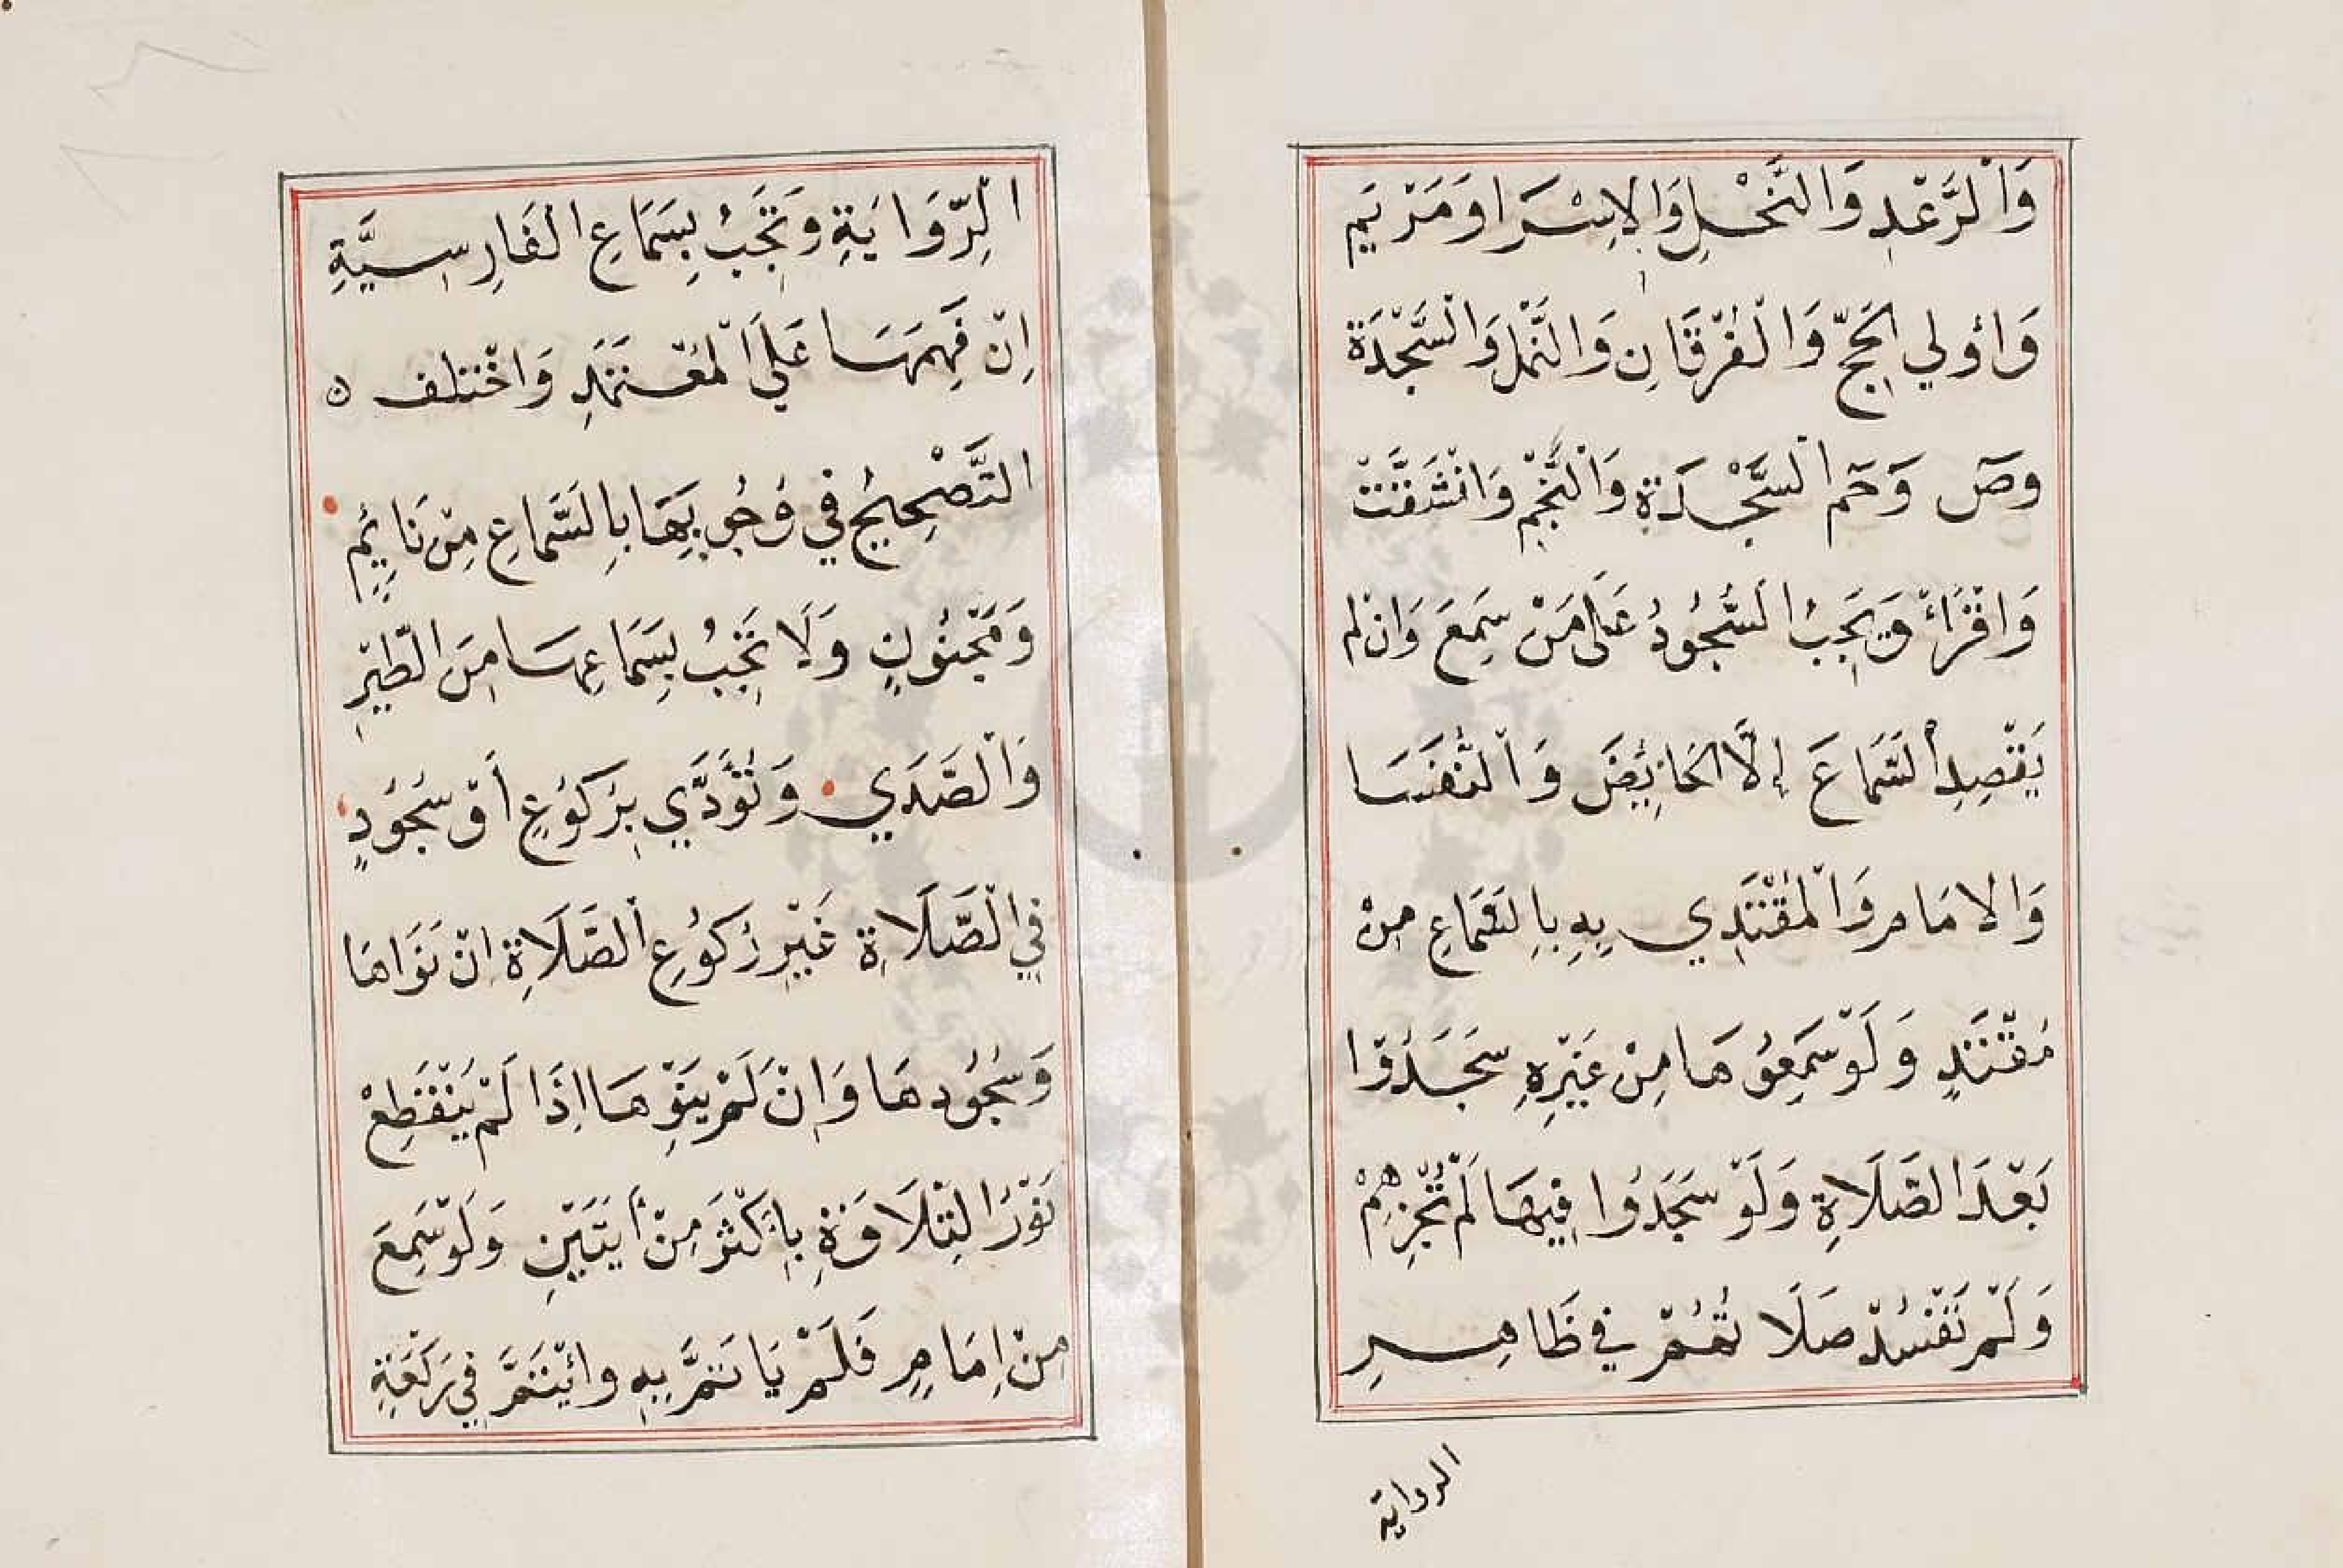 وَالْرَّعْدِ وَالنَّحْلِ وَالِاسْرَا وَمَرْيَم
وَأولي الحَجّ وَالْفُرْقَانِ وَالنَّمْلِ وَالْسَّجْدَة
وصٓ وَحٓم الْسَّجْدَة وَالْنَّجْمِ وَانْشَقَّتْ
وَاقْرَاْ وَيَجِبُ الْسُّجُودُ عَلَى مَنْ سَمِعَ وَانْ لم
يَقْصِدِ الْسَّمَاعَ إلَّا الحَائِضَ وَالْنُّفَسَا
وَالامَامِ وَالْمُقْتَدِي بِهِ بِالسَّمَاعِ مِنْ
مُقْتَدٍ وَلَوْ سَمِعُوهَا مِنْ غَيْرِهِ سَجَدُوْا
بَعْدَ الصَّلَاةِ وَلَوْ سَجَدُوا فِيهَا لَمْ تُجْزِهِمْ
وَلَمْ تَفْسُدْ صَلَاتُهُمْ فِي ظَاهِرِ
الرواية
الْرِّوَايَةِ وَتَجِبُ بِسَمَاعِ الْفَارِسِيَّةِ
اِنْ فَهِمَهَا عَلَى الْمُعْتَمَدِ وَاخْتلف ه
التَّصْحِيحُ فِي وُجُوبِهَا بِالسَّمَاعِ مِنْ نَايِمٍ
وَمَجْنُونٍ وَلَا تَجِبُ بِسَمَاعِهَا مِنَ الطَّيْرِ
وَالْصَّدَي وَتُؤَدَّي بِرُكُوعٍ أَوْ سُجُودٍ
فِي الْصَّلَاةِ غَيْرِ رُكُوعِ الْصَّلَاةِ اِنْ نَوَاهَا
وَسُجُودِهَا وَاِنْ لَمْ يَنْوِهَا اِذَا لَمْ يَنْقَطِعْ
فَوْرُ التِّلَاوَةِ بِأَكْثَرَ مِنْ أيَتَيْنِ وَلَوْ سَمِعَ
مِنْ اِمَامٍ فَلَمْ يَاتَمَّ بِهِ وائْتَمَّ فِي رَكْعَةٍ